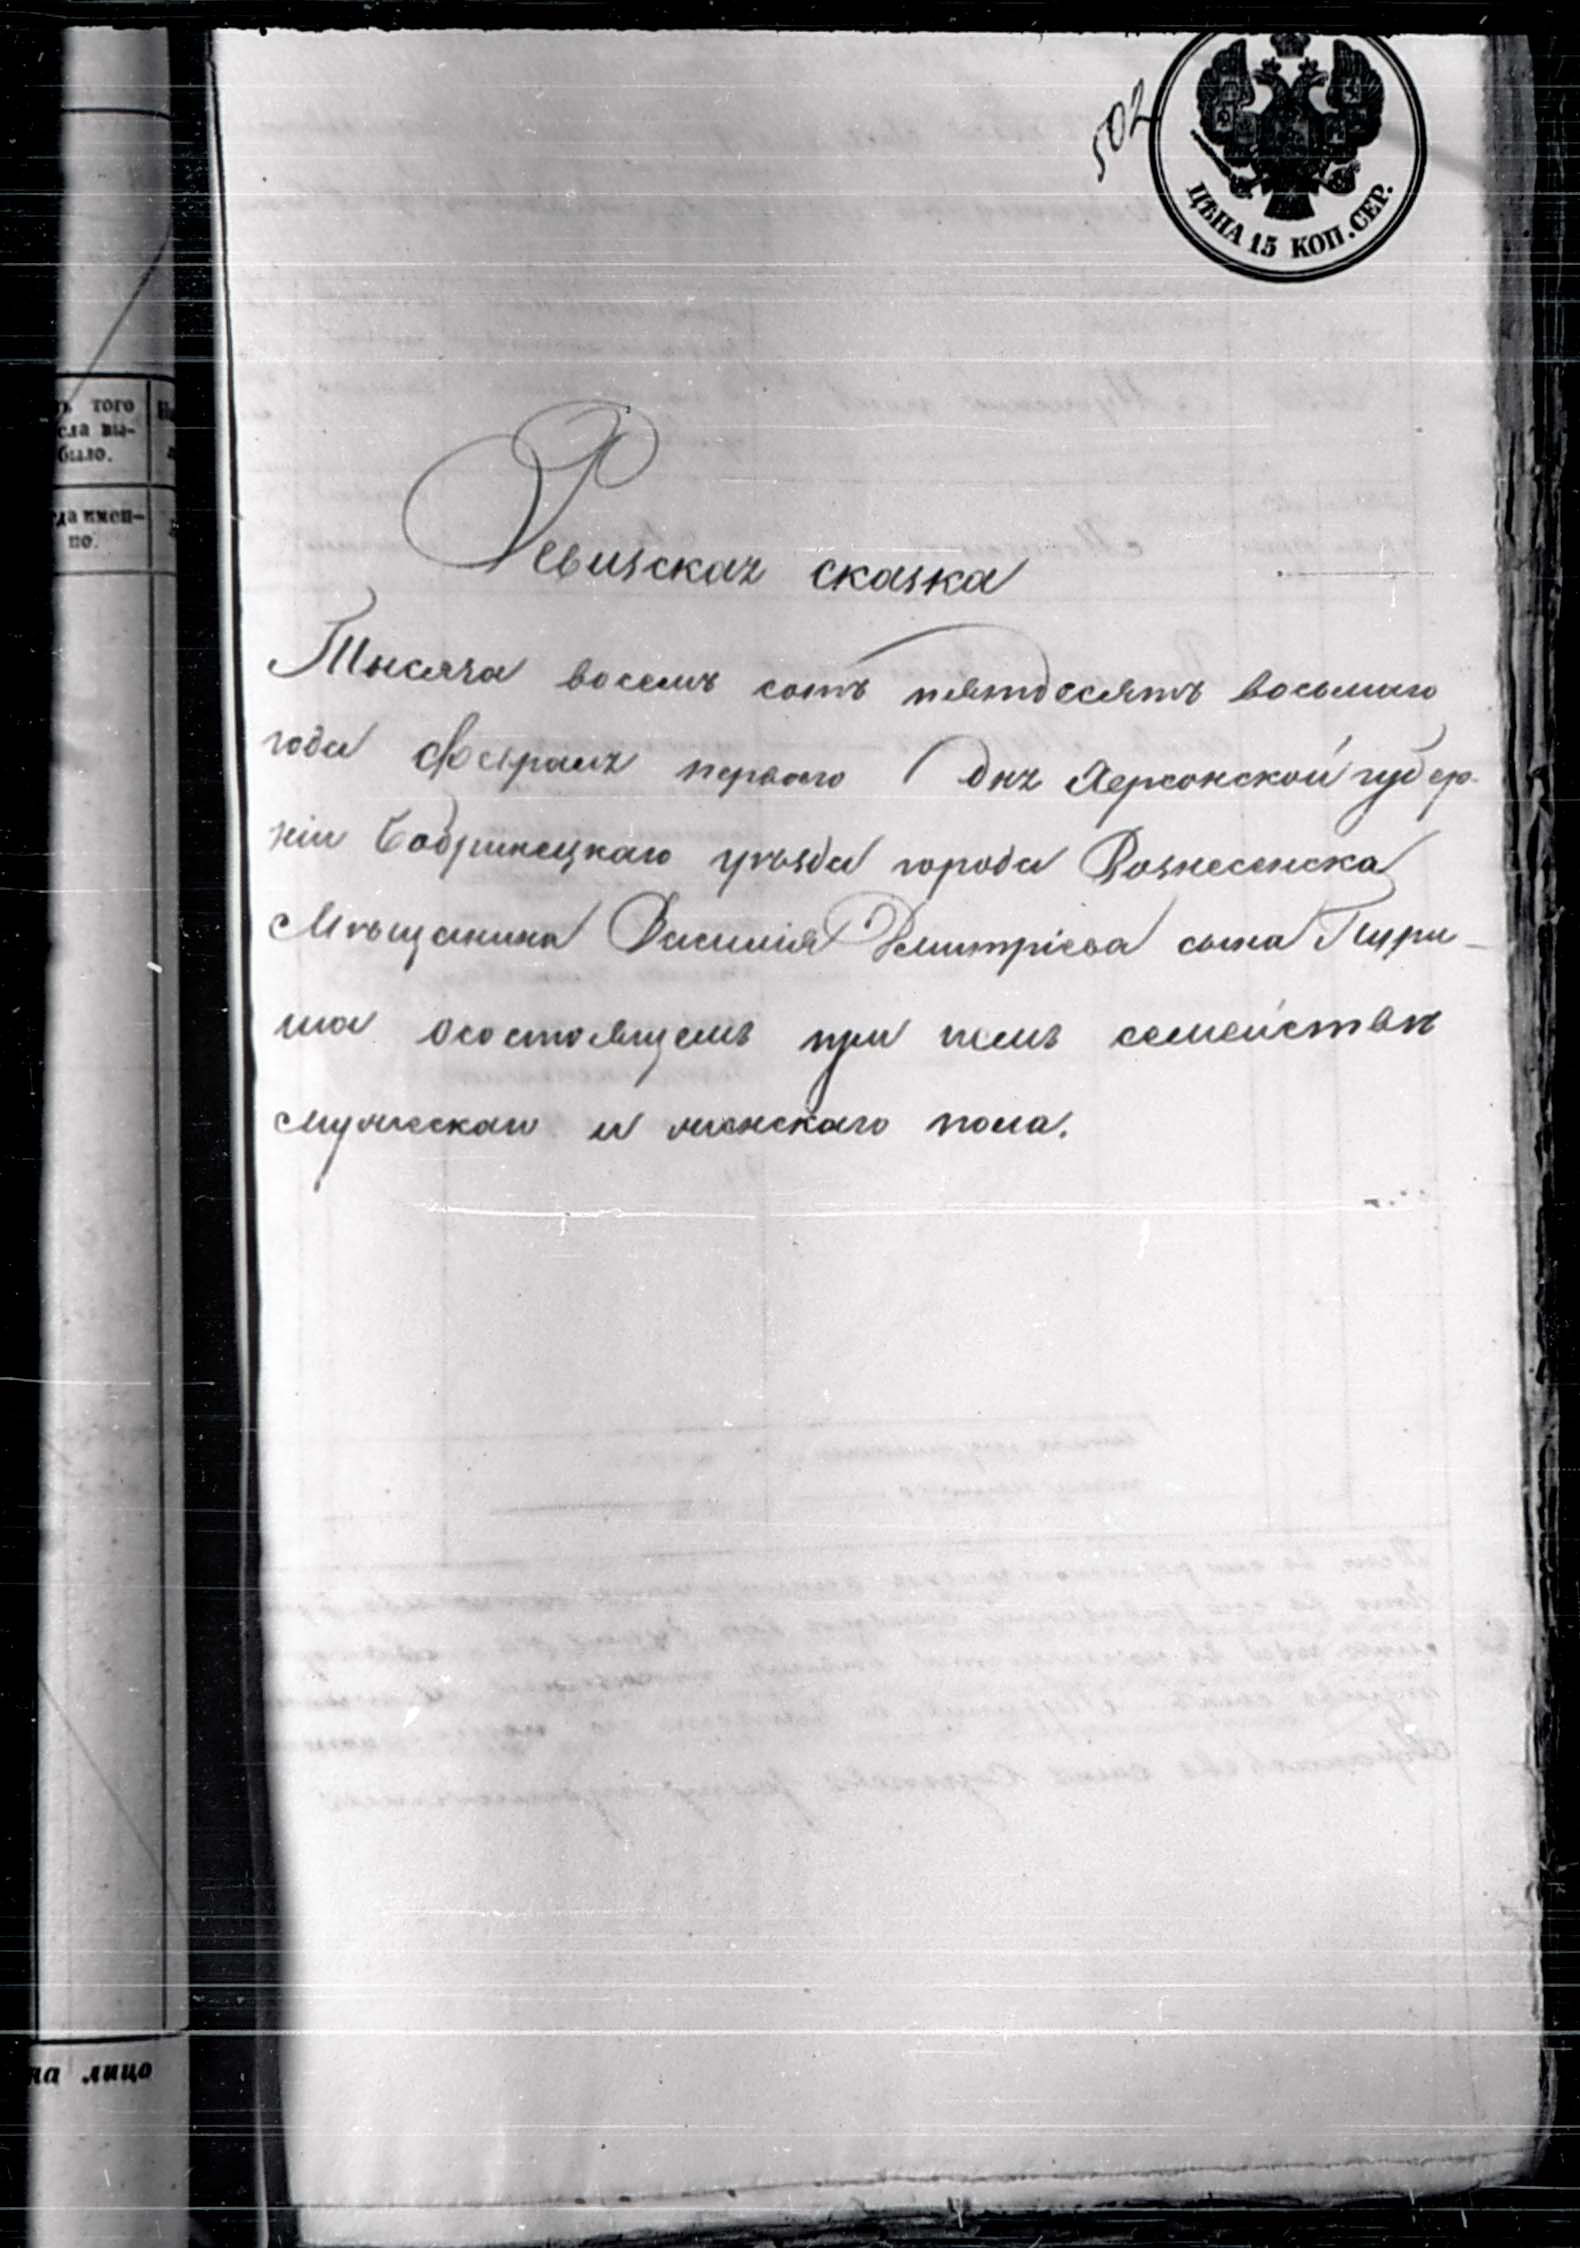 502
ЦѢНА 15 КОП. СЕР.
ть того
сла вы-
было.
гда имен-
но.
Ревизская сказка
Тысяча восемъ сотъ пятдесятъ восьмаго
года Февраля перваго дня Херсонской губер-
ніи Бобринецкаго уѣзда города Вознесенска
Мѣщанина Василія Дмитріева сына
осостоящемъ при немъ семействѣ
мужескаго и женскаго пола.
на лицо